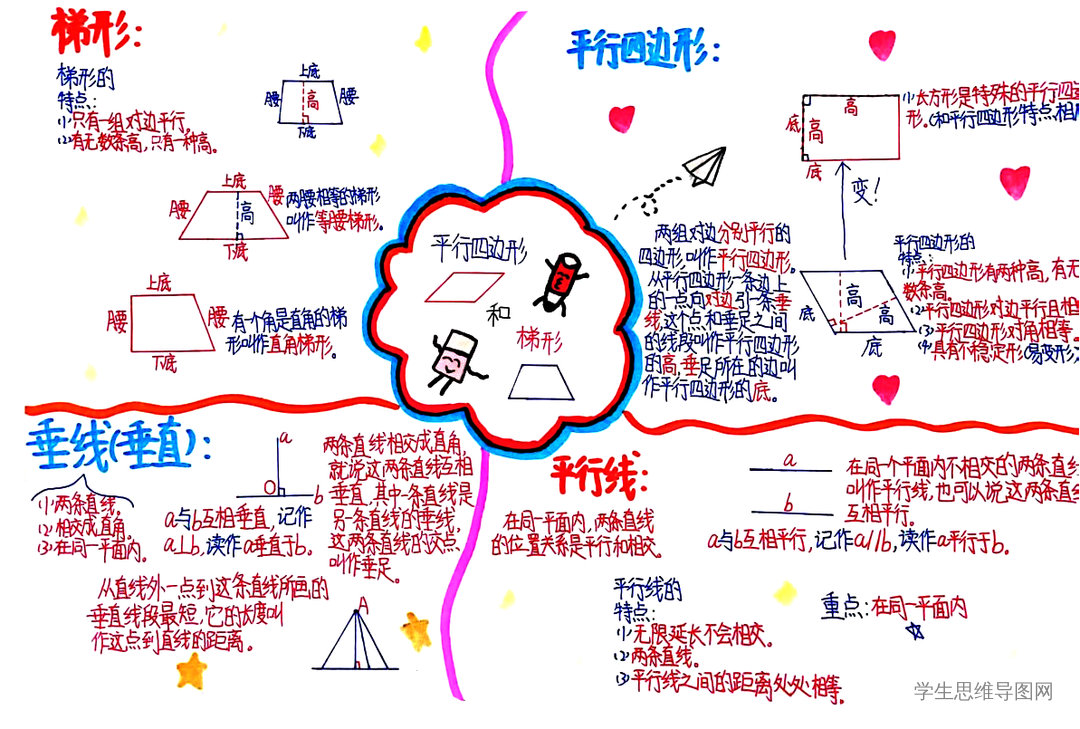 梯形:
梯形的
特点:
(1)只有一组对边平行。
(2)有无数条高,只有一种高。
上底
腰
高
腰
下底
上底
腰
高
腰
下底
两腰相等的梯形
叫作等腰梯形。
上底
腰
腰
下底
有一个角是直角的梯
形叫作直角梯形。
平行四边形
和
梯形
平行四边形:
高
底
高
底
(1)长方形是特殊的平行四边
形。(和平行四边形特点相
变!
两组对边分别平行的
四边形,叫作平行四边形。
从平行四边形一条边上
的一点向对边引一条垂
线,这个点和垂足之间
的线段叫作平行四边形
的高,垂足所在的边叫
作平行四边形的底。
高
底
高
底
平行四边形的
特点:
(1)平行四边形有两种高,有无
数条高。
(2)平行四边形对边平行且相
(3)平行四边形对角相等。
(4)具有不稳定形(易变形)
垂线(垂直):
(1)两条直线。
(2)相交成直角。
(3)在同一平面内。
a
O
b
a与b互相垂直,记作
a⊥b,读作a垂直于b。
两条直线相交成直角,
就说这两条直线互相
垂直,其中一条直线是
另一条直线的垂线,
这两条直线的交点、
叫作垂足。
从直线外一点到这条直线所画的
垂直线段最短,它的长度叫
作这点到直线的距离。
A
平行线:
在同一平面内,两条直线
的位置关系是平行和相交。
a
b
在同一个平面内不相交的两条直线
叫作平行线,也可以说这两条直线
互相平行。
a与b互相平行,记作a//b,读作a平行于b。
平行线的
特点:
(1)无限延长不会相交。
(2)两条直线。
(3)平行线之间的距离处处相等。
重点:在同一平面内
学生思维导图网